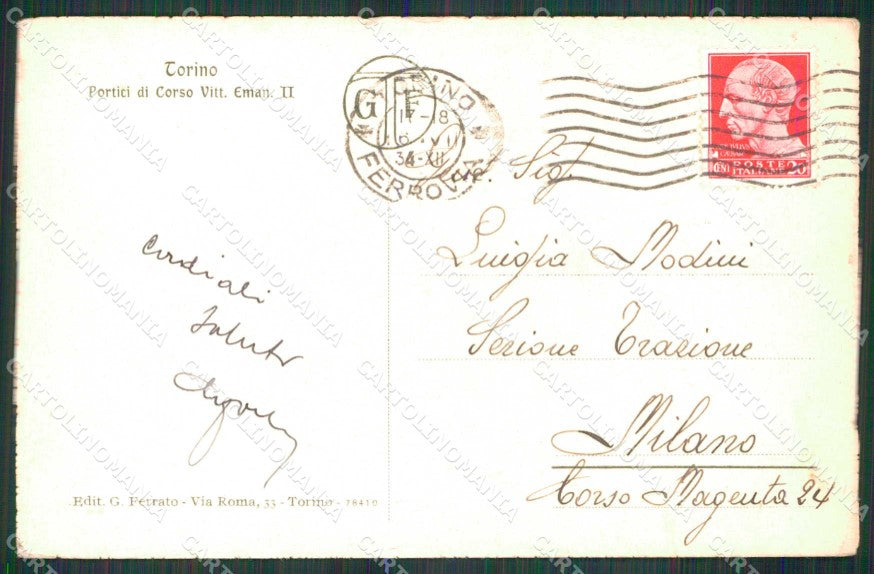 Torino
Portici di Corso Vitt. Eman. II
TORINO
FERROVIA
G
17-8
34-XII
GIULIVS
CAESAR
CENT POSTE 20
ITALIANE
Sig.
Luigia Modini
Sezione Trazione
Milano
Corso Magenta 24
Cordiali
Saluti
Edit. G. Ferrato - Via Roma, 33 - Torino - 78419
CARTOLINOMANIA